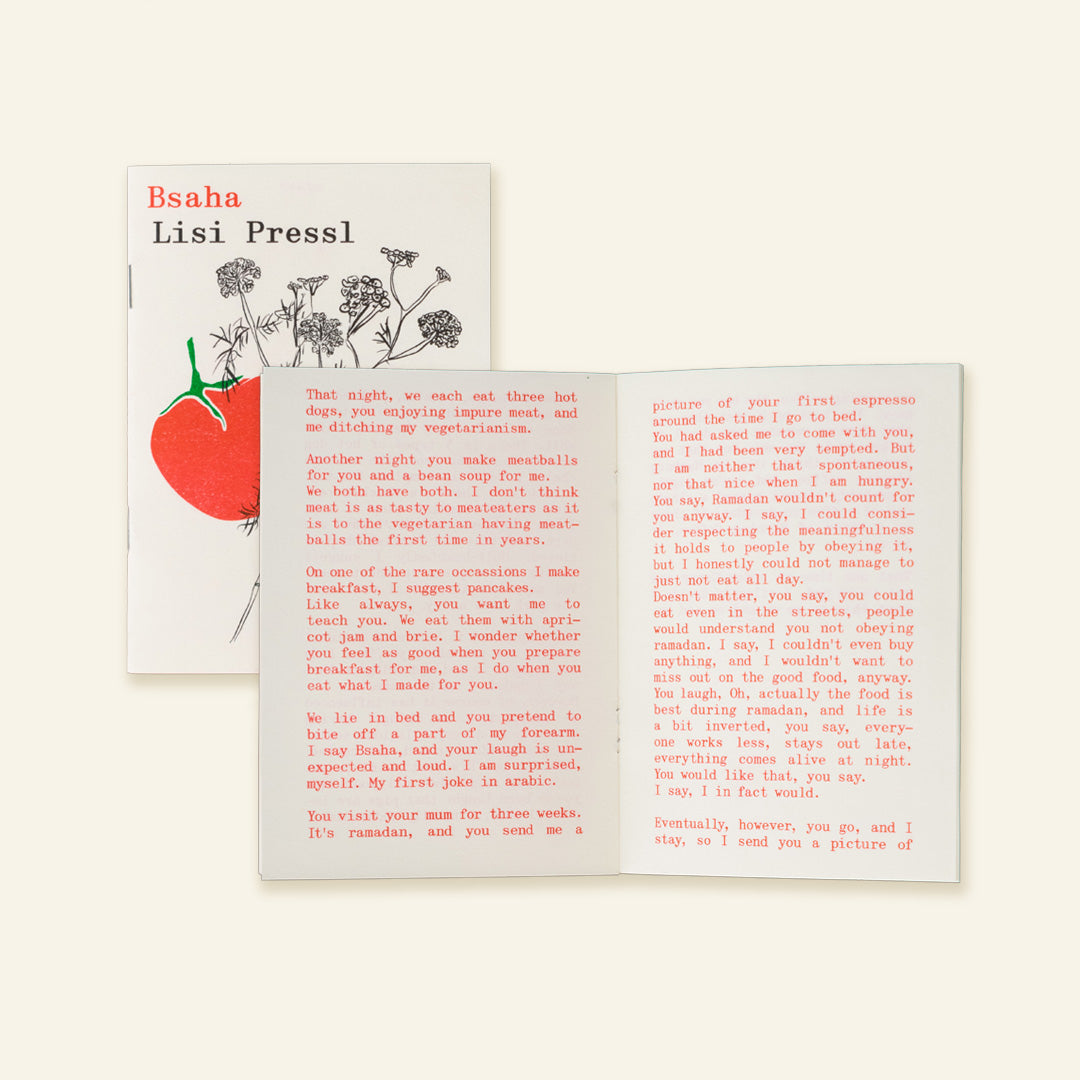 Bsaha
Lisi Pressl
That night, we each eat three hot
dogs, you enjoying impure meat, and
me ditching my vegetarianism.
Another night you make meatballs
for you and a bean soup for me.
We both have both. I don't think
meat is as tasty to meateaters as it
is to the vegetarian having meat-
balls the first time in years.
On one of the rare occassions I make
breakfast, I suggest pancakes.
Like always, you want me to
teach you. We eat them with apri-
cot jam and brie. I wonder whether
you feel as good when you prepare
breakfast for me, as I do when you
eat what I made for you.
We lie in bed and you pretend to
bite off a part of my forearm.
I say Bsaha, and your laugh is un-
expected and loud. I am surprised,
myself. My first joke in arabic.
You visit your mum for three weeks.
It's ramadan, and you send me a
picture of your first espresso
around the time I go to bed.
You had asked me to come with you,
and I had been very tempted. But
I am neither that spontaneous,
nor that nice when I am hungry.
You say, Ramadan wouldn't count for
you anyway. I say, I could consi-
der respecting the meaningfulness
it holds to people by obeying it,
but I honestly could not manage to
just not eat all day.
Doesn't matter, you say, you could
eat even in the streets, people
would understand you not obeying
ramadan. I say, I couldn't even buy
anything, and I wouldn't want to
miss out on the good food, anyway.
You laugh, Oh, actually the food is
best during ramadan, and life is
a bit inverted, you say, every-
one works less, stays out late,
everything comes alive at night.
You would like that, you say.
I say, I in fact would.
Eventually, however, you go, and I
stay, so I send you a picture of